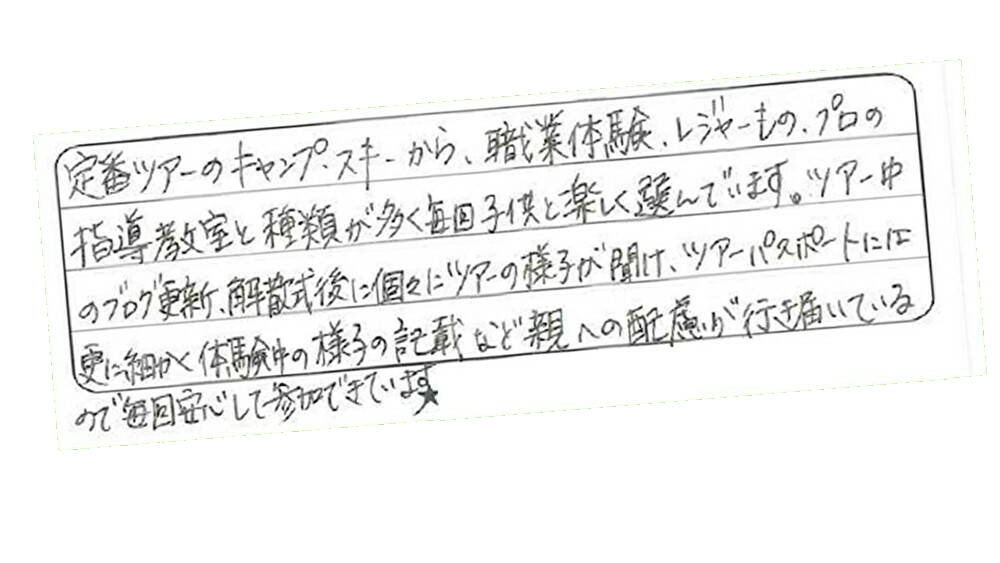 定番ツアーのキャンプ、スキーから、職業体験、レジャーもの、プロの
指導教室と種類が多く毎回子供と楽しく選んでいます。ツアー中
のブログ更新、解散式後に個々にツアーの様子が聞け、ツアーパスポートには
更に細かく体験中の様子の記載など親への配慮が行き届いている
ので毎回安心して参加できています★